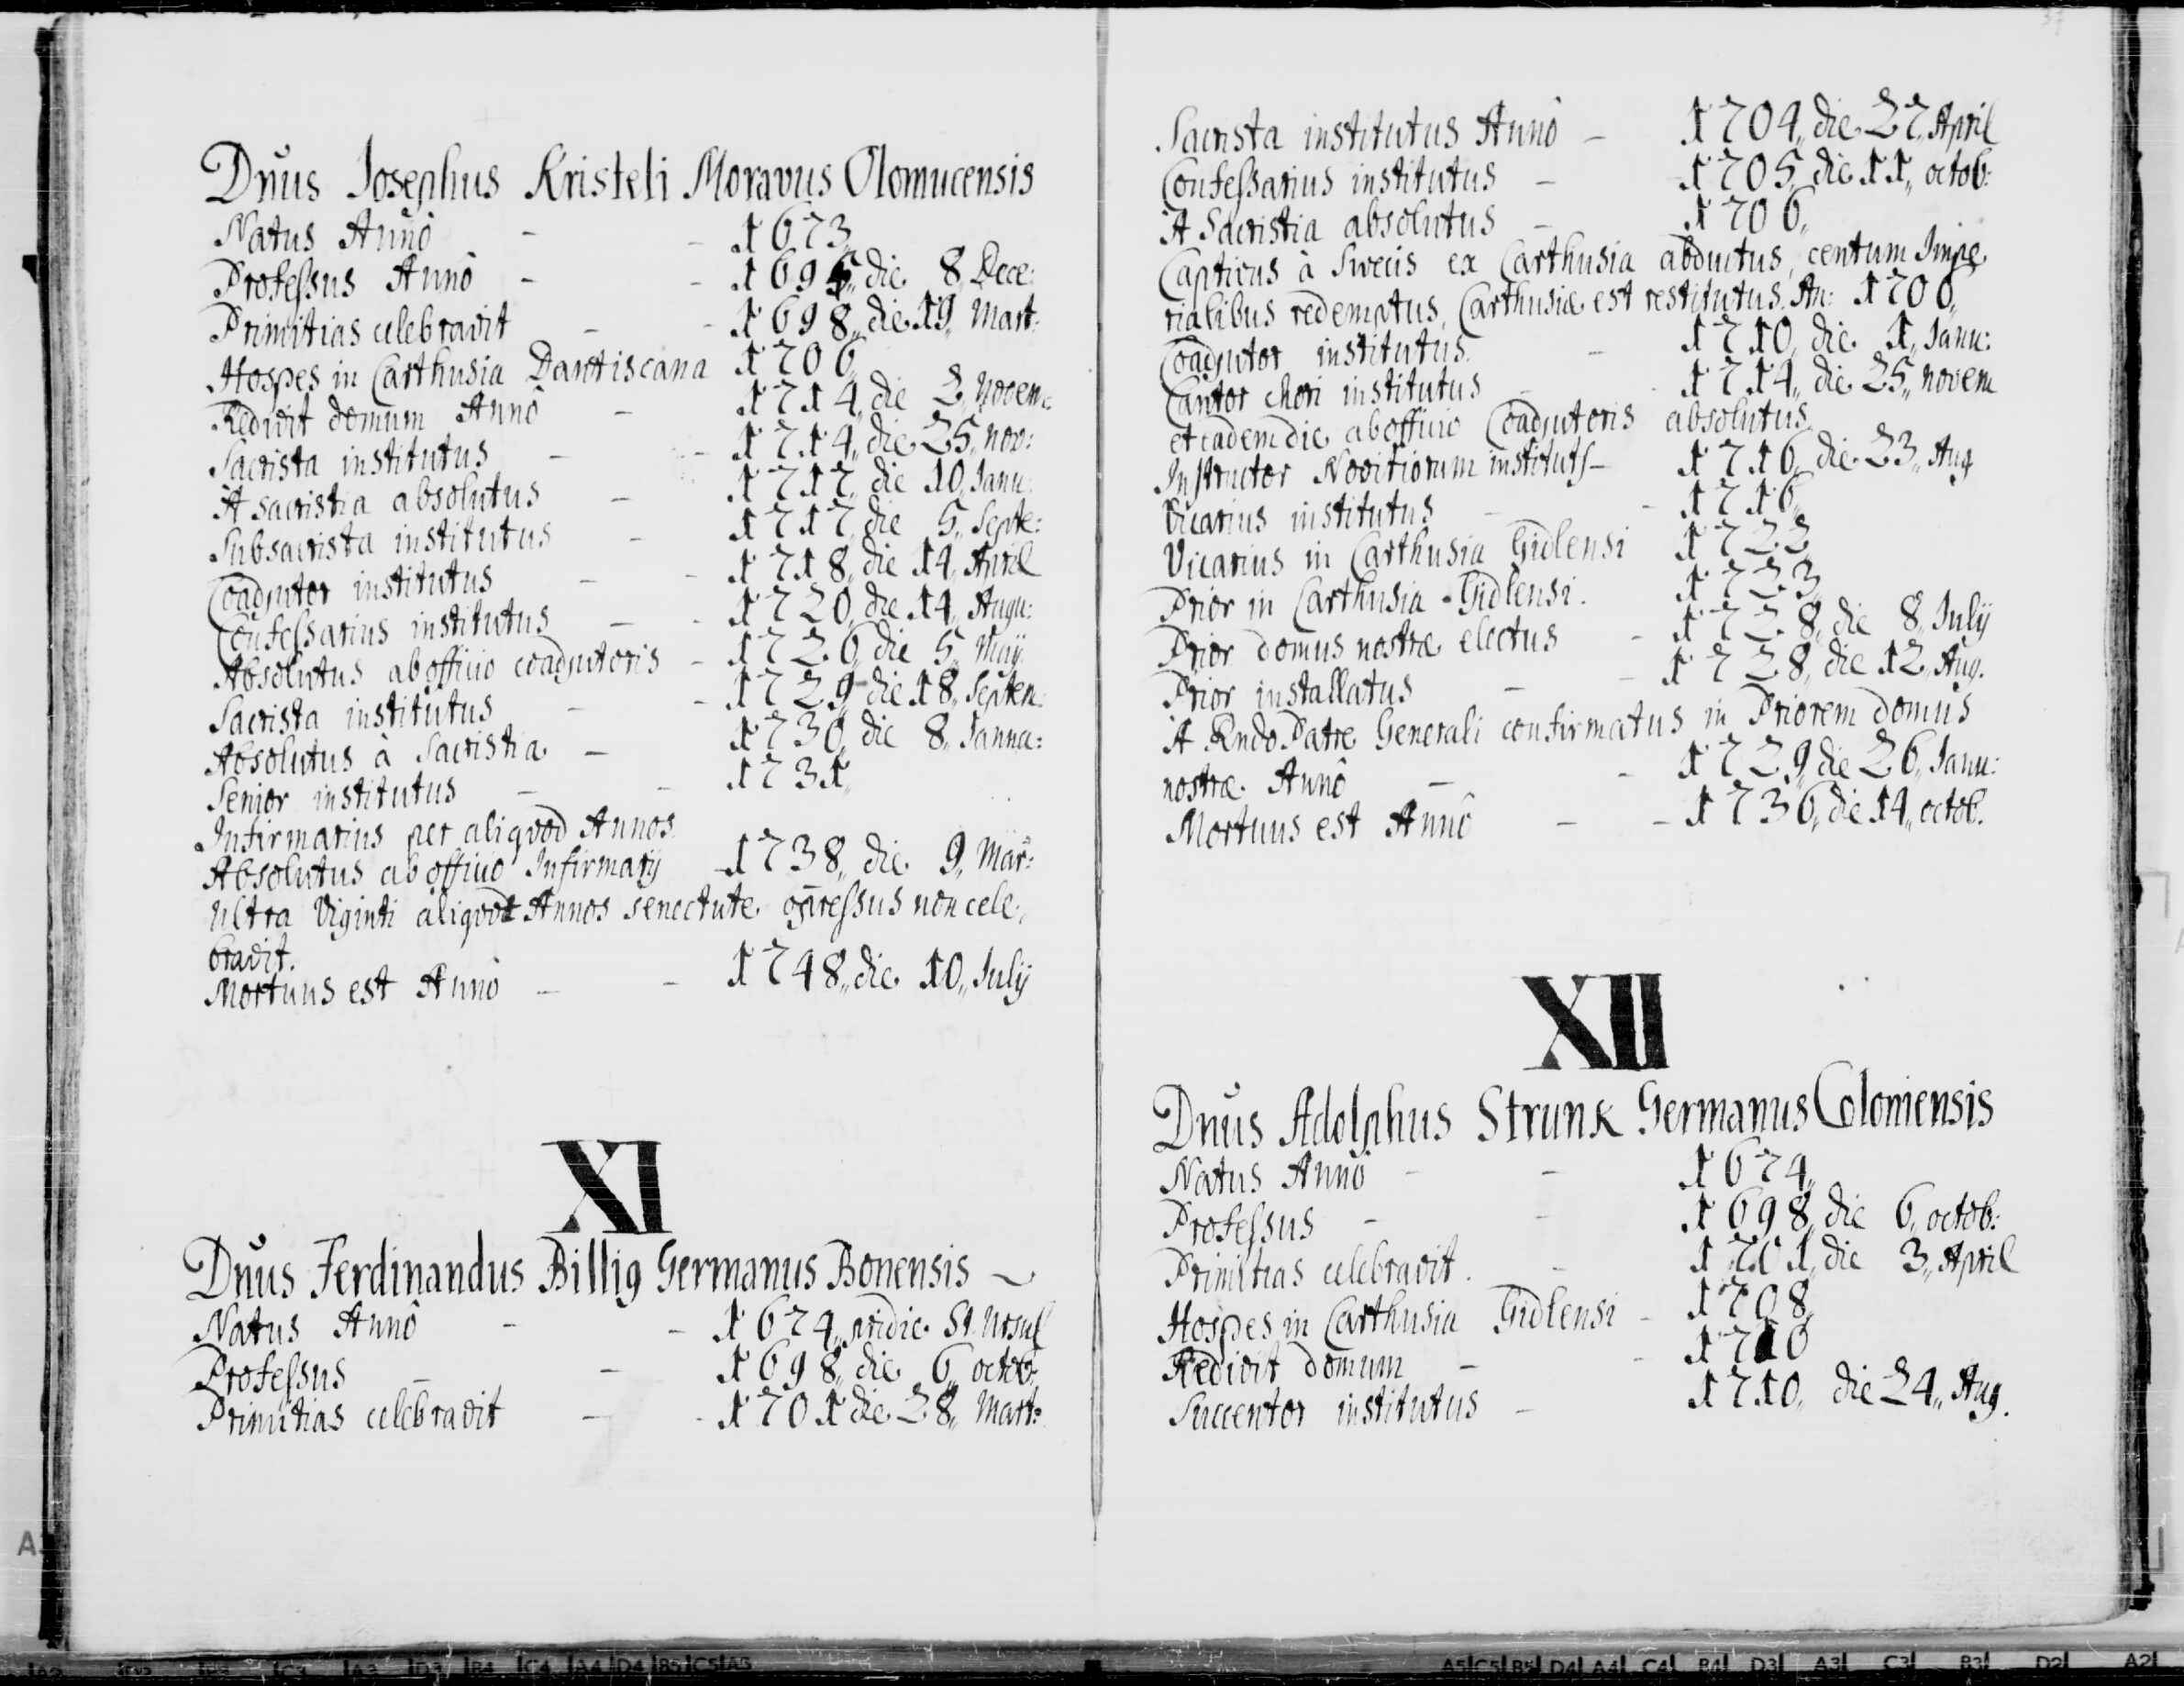 Dnūs Josephus Kristeli Moravus Olomucensis
Natus Annô - - 1673„
Profeſsus Annô - - 1695„ die 8„ Dece:
Primitias celebravit - - 1698„ die 19„ Mart:
Hospes in Carthusia Dantiscana 1706„
Redivit domum Annô - 1714„ die 2„ Novem:
Sacrista institutus - - 1714„ die 25„ nov:
A sacristia absolutus - 1717„ die 10„ Janu:
Subsacrista institutus - 1717„ die 5„ Septe:
Coadjutor institutus - - 1718„ die 14„ April
Confeſsarius institutus - - 1720„ die 14„ Augu:
Absolutus ab officio coadjutoris - 1726„ die 5„ Maij
Sacrista institutus - - 1729„ die 18„ Septem:
Absolutus à Sacristia - 1730„ die 8„ Janua:
Senior institutus - - 1731„
Infirmarius per aliqvod Annos
Absolutus ab officio Infirmarij - 1738„ die 9„ Mar:
Ultra Viginti aliqvot Annos senectute oppreſsus non cele„
bravit.
Mortuus est Annô - - 1748„ die 10„ Julij
XI
Dnūs Ferdinandus Billig Germanus Bonensis
Natus Annô - - 1674„ pridie St. Ursul
Profeſsus - - 1698„ die 6„ octob:
Primitias celebravit - - 1701 die 28„ Mart:
Sacrista institutus Annô - 1704„ die 27„ April
Confeſsarius institutus - 1705„ die 11„ octob:
A Sacristia absolutus - 1706„
Captivus à Swecis ex Carthusia abductus, centum Impe„
rialibus redemptus, Carthusiæ est restitutus. An: 1706„
Coadjutor institutus - 1710„ die 1„ Janu:
Cantor chori institutus - - 1714„ die 25„ novem
et eadem die ab officio Coadjutoris absolutus
Instructor Novitiorum institutſ - 1716„ die 23„ Aug
Vicarius institutus - - 1716„
Vicarius in Carthusia Gidlensi 1722„
Prior in Carthusia Gidlensi. 1723„
Prior domus nostræ electus - 1728„ die 8„ Julij
Prior installatus - - 1728„ die 12„ Aug.
A Rndo Patre Generali confirmatus in Priorem domûs
nostræ Annô - - 1729„ die 26„ Janu:
Mortuus est Annô - - 1736„ die 14„ octob.
XII
Dnūs Adolphus Strunk Germanus Coloniensis
Natus Annô - - 1674„
Profeſsus - - 1698„ die 6„ octob:
Primitias celebravit. - 1701„ die 3„ April
Hospes in Carthusia Gidlensi - 1708„
Redivit domum - - 1710
Succentor institutus - 1710„ die 24„ Aug.